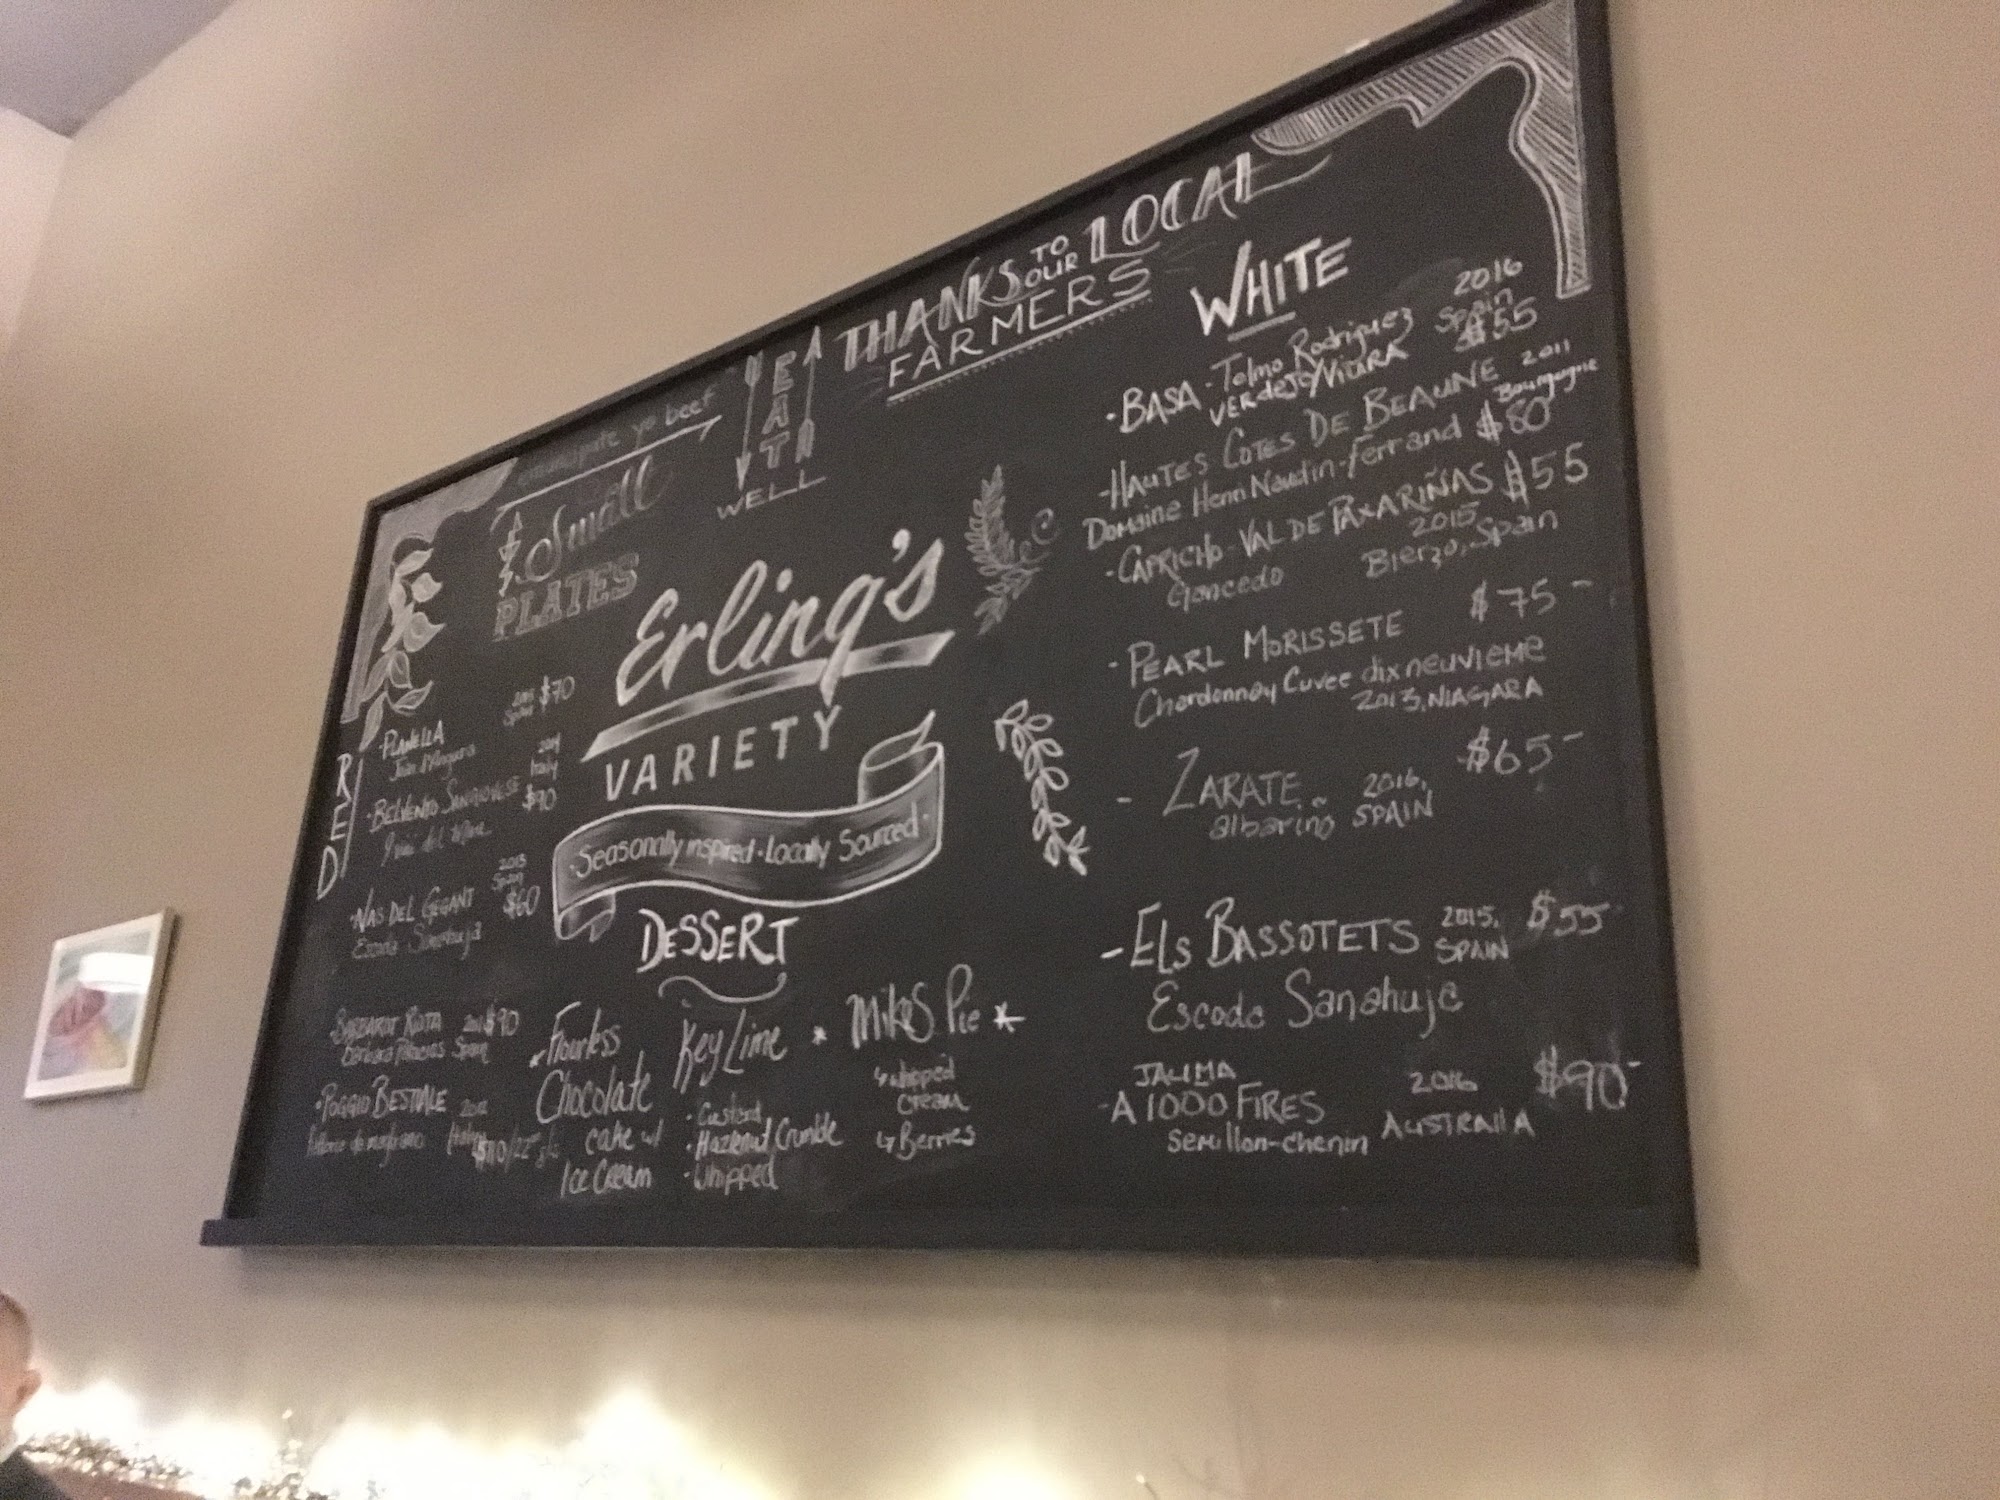 THANKS TO OUR LOCAL
FARMERS
EAT
WELL
yo beef
Small
PLATES
Erling's
VARIETY
·Seasonally inspired·Locally Sourced·
RED
·PLANELLA $70
Spain
·BELVENTO SANGIOVESE
Italy
$90
·NAS DEL GEGANT
2013
Spain
$60
Escoda Sanahuja
$90
Spain
·POGGIO BESTIALE
DESSERT
Flourless
Chocolate
cake w/
Ice Cream
Key Lime
·Custard
·Hazelnut Crumble
·Whipped
* Mikes Pie *
whipped
cream
Berries
WHITE
·BASA - Telmo Rodriguez 2016
Spain
VERdeJo/VIURA $55
-HAUTES COTES DE BEAUNE 2011
Bourgogne
Domaine Henri Naudin-Ferrand $80
·CAPRICHO - VAL DE PAXARIÑAS $55
2015
Gancedo Bierzo, Spain
·PEARL MORISSETE $75-
Chardonnay Cuvee dix neuVIEME
2013, NIAGARA
- ZARATE 2016, $65-
albariño SPAIN
-ELS BASSOTETS 2015, $55
SPAIN
Escoda Sanahuja
JAUMA
-A 1000 FIRES 2016 $90-
semillon-chenin AUSTRALIA